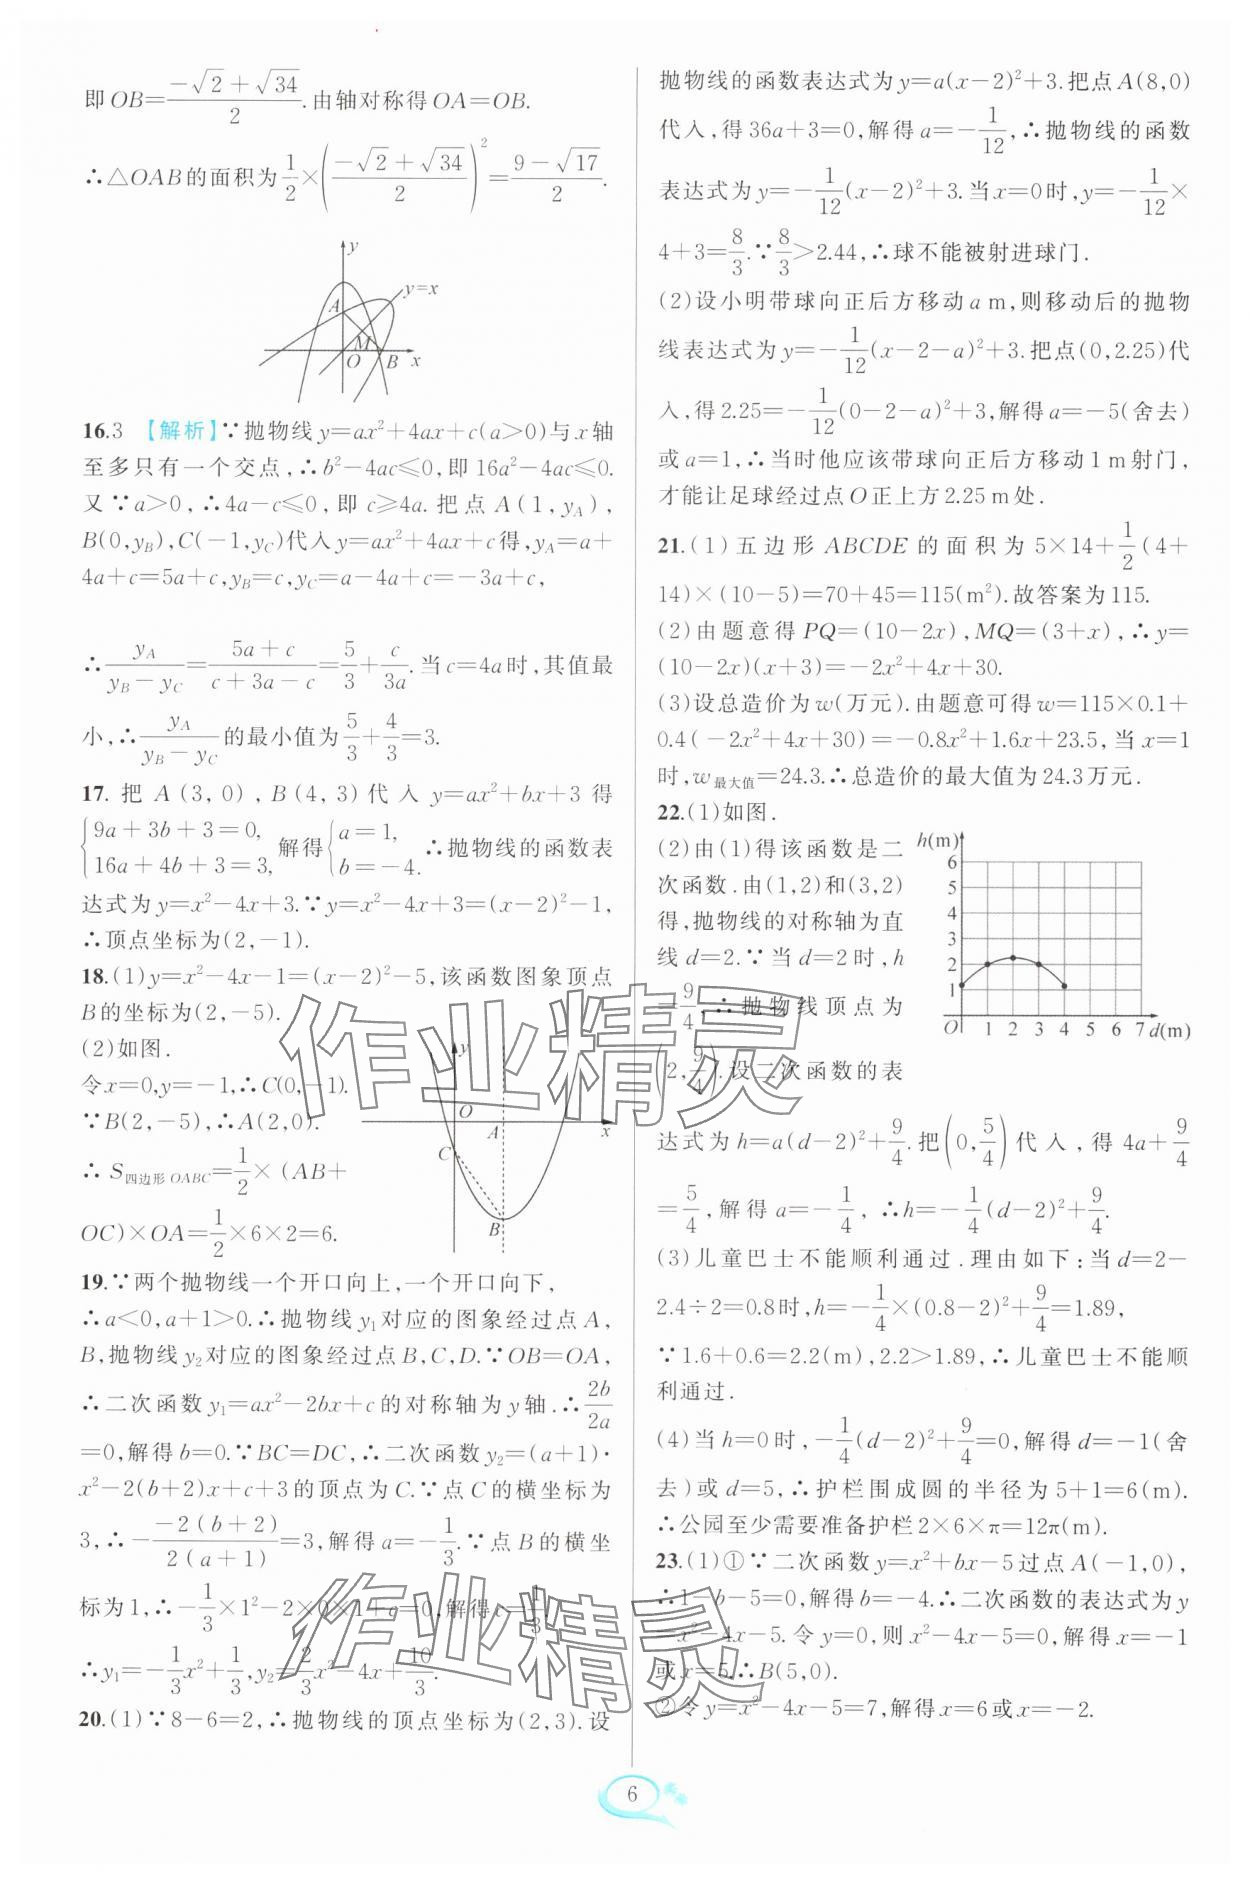 即OB=(-√2+√34)/2.由轴对称得OA=OB.
∴△OAB的面积为1/2×((-√2+√34)/2)²=(9-√17)/2.
y
y=x
A
M
O B x
16.3 【解析】∵抛物线y=ax²+4ax+c(a>0)与x轴
至多只有一个交点,∴b²-4ac≤0,即16a²-4ac≤0.
又∵a>0,∴4a-c≤0,即c≥4a.把点A(1,y_A),
B(0,y_B),C(-1,y_C)代入y=ax²+4ax+c得,y_A=a+
4a+c=5a+c,y_B=c,y_C=a-4a+c=-3a+c,
∴y_A/(y_B-y_C)=(5a+c)/(c+3a-c)=5/3+c/3a.当c=4a时,其值最
小,∴y_A/(y_B-y_C)的最小值为5/3+4/3=3.
17. 把A(3,0),B(4,3)代入y=ax²+bx+3得
{9a+3b+3=0, 16a+4b+3=3, 解得{a=1, b=-4. ∴抛物线的函数表
达式为y=x²-4x+3.∵y=x²-4x+3=(x-2)²-1,
∴顶点坐标为(2,-1).
18.(1)y=x²-4x-1=(x-2)²-5,该函数图象顶点
B的坐标为(2,-5).
(2)如图.
令x=0,y=-1,∴C(0,-1).
∵B(2,-5),∴A(2,0).
∴S四边形OABC=1/2×(AB+
OC)×OA=1/2×6×2=6.
y
O
A x
C
B
19.∵两个抛物线一个开口向上,一个开口向下,
∴a<0,a+1>0.∴抛物线y₁对应的图象经过点A,
B,抛物线y₂对应的图象经过点B,C,D.∵OB=OA,
∴二次函数y₁=ax²-2bx+c的对称轴为y轴.∴2b/2a
=0,解得b=0.∵BC=DC,∴二次函数y₂=(a+1)·
x²-2(b+2)x+c+3的顶点为C.∵点C的横坐标为
3,∴-(-2(b+2))/(2(a+1))=3,解得a=-1/3.∵点B的横坐
标为1,∴-1/3×1²-2×0×1+c=0,解得c=1/3.
∴y₁=-1/3x²+1/3,y₂=2/3x²-4x+10/3.
20.(1)∵8-6=2,∴抛物线的顶点坐标为(2,3).设
抛物线的函数表达式为y=a(x-2)²+3.把点A(8,0)
代入,得36a+3=0,解得a=-1/12,∴抛物线的函数
表达式为y=-1/12(x-2)²+3.当x=0时,y=-1/12×
4+3=8/3.∵8/3>2.44,∴球不能被射进球门.
(2)设小明带球向正后方移动a m,则移动后的抛物
线表达式为y=-1/12(x-2-a)²+3.把点(0,2.25)代
入,得2.25=-1/12(0-2-a)²+3,解得a=-5(舍去)
或a=1,∴当时他应该带球向正后方移动1 m射门,
才能让足球经过点O正上方2.25 m处.
21.(1)五边形ABCDE的面积为5×14+1/2(4+
14)×(10-5)=70+45=115(m²).故答案为115.
(2)由题意得PQ=(10-2x),MQ=(3+x),∴y=
(10-2x)(x+3)=-2x²+4x+30.
(3)设总造价为w(万元).由题意可得w=115×0.1+
0.4(-2x²+4x+30)=-0.8x²+1.6x+23.5,当x=1
时,w最大值=24.3.∴总造价的最大值为24.3万元.
22.(1)如图.
(2)由(1)得该函数是二
次函数.由(1,2)和(3,2)
得,抛物线的对称轴为直
线d=2.∵当d=2时,h
=9/4,∴抛物线顶点为
(2,9/4).设二次函数的表
h(m)
6
5
4
3
2
1
O 1 2 3 4 5 6 7 d(m)
达式为h=a(d-2)²+9/4.把(0,5/4)代入,得4a+9/4
=5/4,解得a=-1/4,∴h=-1/4(d-2)²+9/4.
(3)儿童巴士不能顺利通过.理由如下:当d=2-
2.4÷2=0.8时,h=-1/4×(0.8-2)²+9/4=1.89,
∵1.6+0.6=2.2(m),2.2>1.89,∴儿童巴士不能顺
利通过.
(4)当h=0时,-1/4(d-2)²+9/4=0,解得d=-1(舍
去)或d=5,∴护栏围成圆的半径为5+1=6(m).
∴公园至少需要准备护栏2×6×π=12π(m).
23.(1)①∵二次函数y=x²+bx-5过点A(-1,0),
∴1-b-5=0,解得b=-4.∴二次函数的表达式为y
=x²-4x-5.令y=0,则x²-4x-5=0,解得x=-1
或x=5.∴B(5,0).
②令y=x²-4x-5=7,解得x=6或x=-2.
作业精灵
作业精灵
6